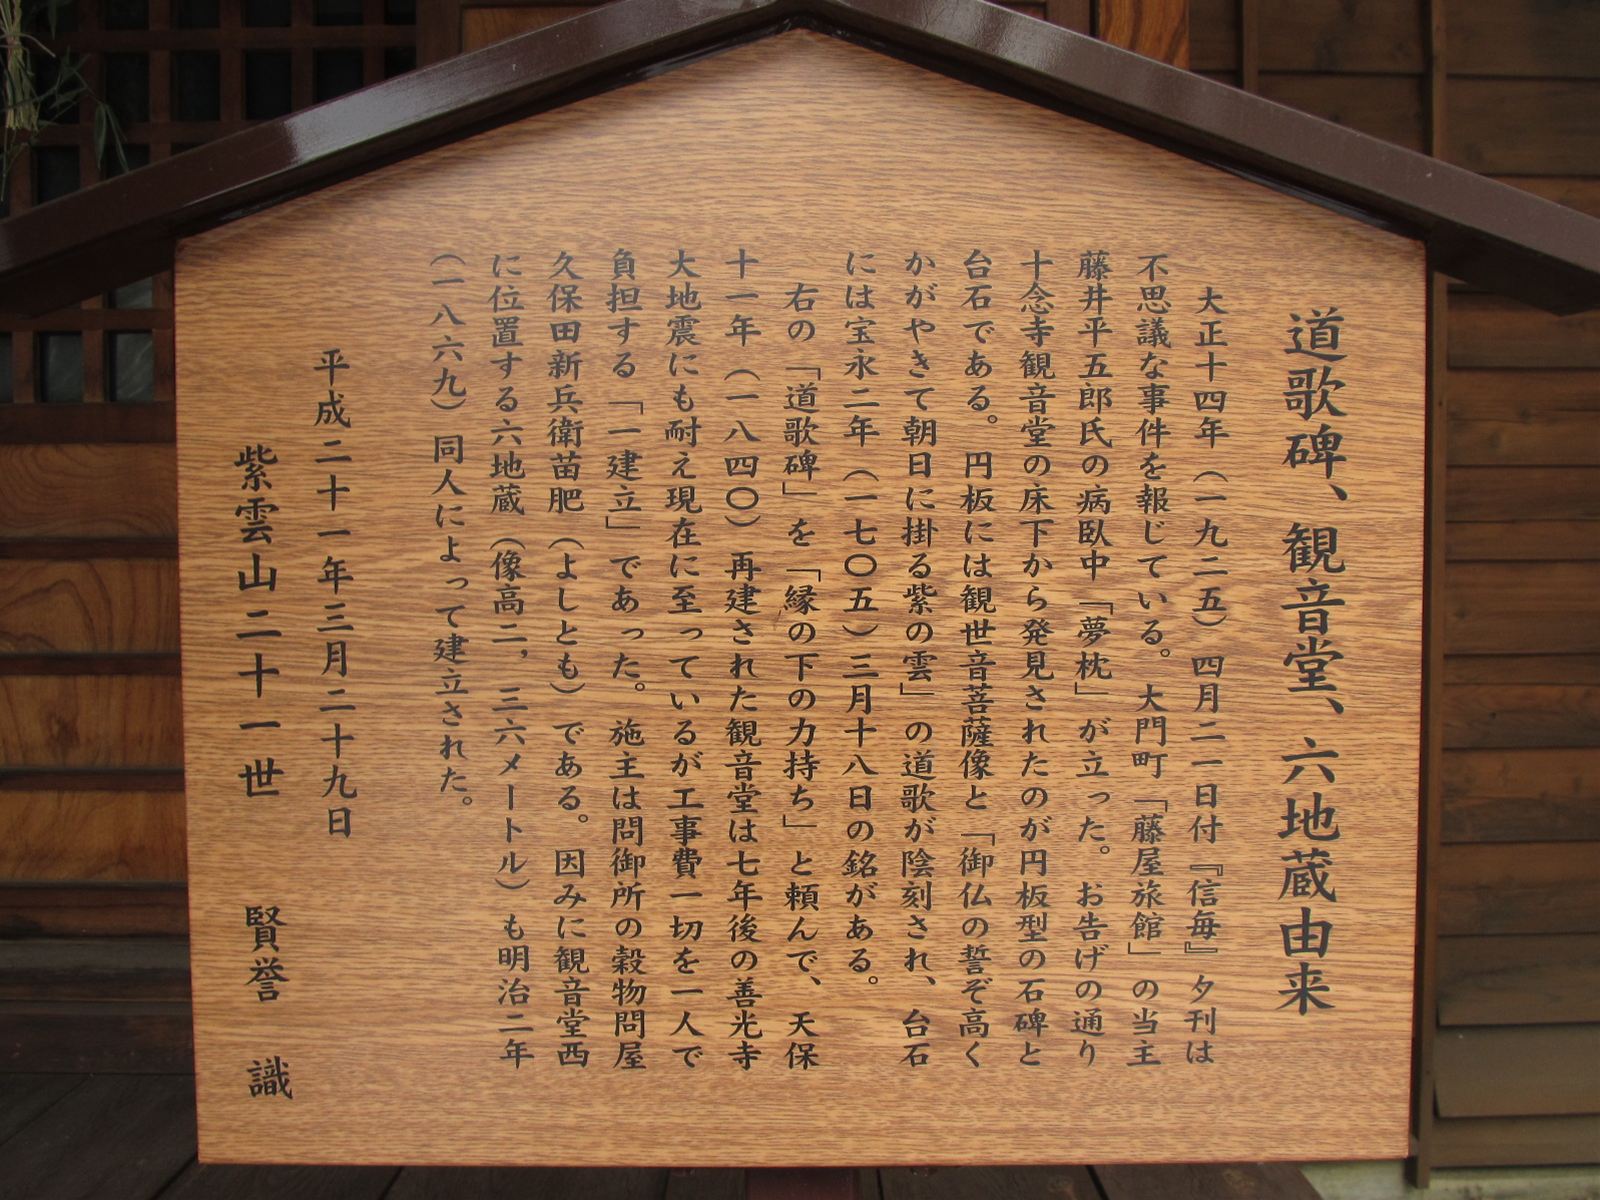 道歌碑、観音堂、六地蔵由来
大正十四年（一九二五）四月二一日付『信毎』夕刊は
不思議な事件を報じている。大門町「藤屋旅館」の当主
藤井平五郎氏の病臥中「夢枕」が立った。お告げの通り
十念寺観音堂の床下から発見されたのが円板型の石碑と
台石である。円板には観世音菩薩像と「御仏の誓ぞ高く
かがやきて朝日に掛る紫の雲」の道歌が陰刻され、台石
には宝永二年（一七〇五）三月十八日の銘がある。
右の「道歌碑」を「縁の下の力持ち」と頼んで、天保
十一年（一八四〇）再建された観音堂は七年後の善光寺
大地震にも耐え現在に至っているが工事費一切を一人で
負担する「一建立」であった。施主は問御所の穀物問屋
久保田新兵衛苗肥（よしとも）である。因みに観音堂西
に位置する六地蔵（像高二，三六メートル）も明治二年
（一八六九）同人によって建立された。
平成二十一年三月二十九日
紫雲山二十一世　賢誉　識